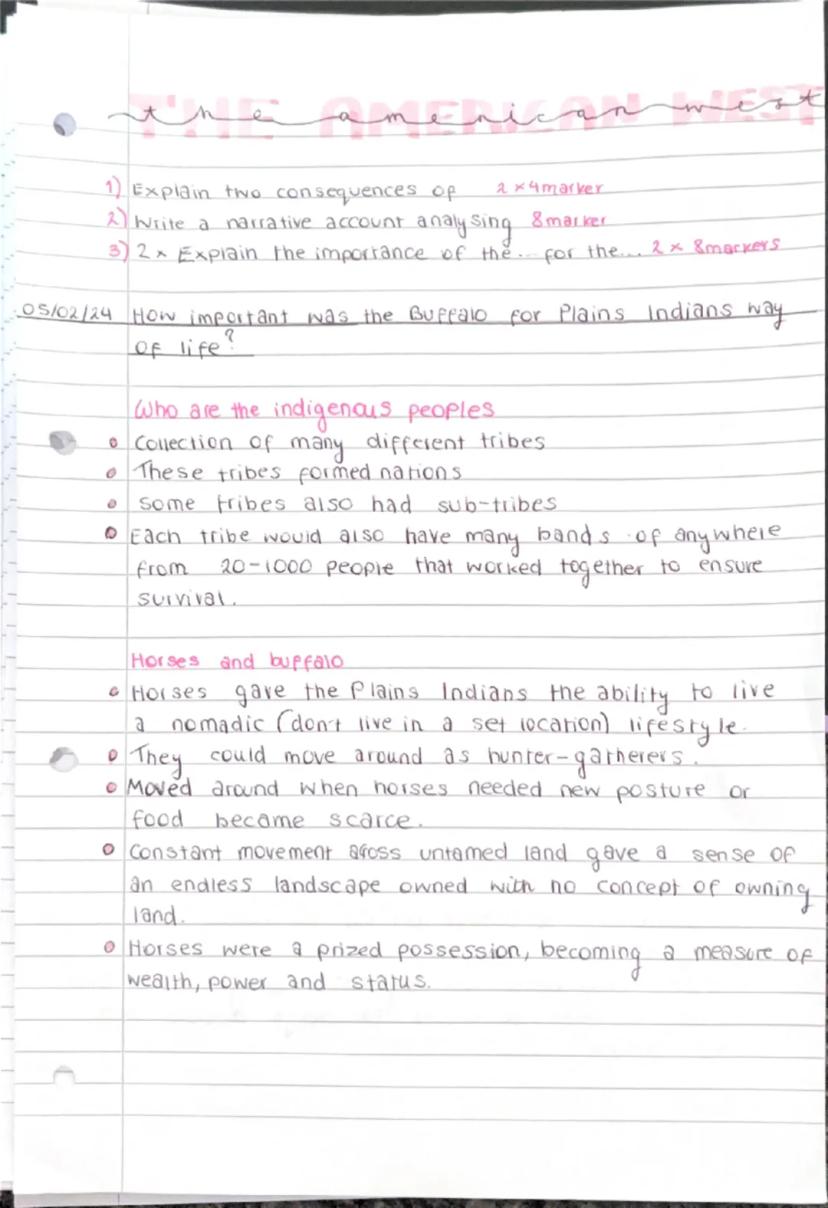 THE AMERICAN WEST
the american west
1) Explain two consequences of 2 x 4marker
2) Write a narrative account analysing 8marker
3) 2 x Explain the importance of the... for the... 2 x 8markers
05/02/24 How important was the Buffalo for Plains Indians way
of life?
Who are the indigenous peoples
Collection of many different tribes
These tribes formed nations
Some tribes also had sub-tribes
Each tribe would also have many bands of anywhere
from 20-1000 people that worked together to ensure
survival.
Horses and buffalo
Horses gave the Plains Indians the ability to live
a nomadic (don't live in a set location) lifestyle.
They could move around as hunter-gatherers.
Moved around when horses needed new posture or
food became scarce.
Constant movement across untamed land gave a sense of
an endless landscape owned with no concept of owning
land.
Horses were a prized possession, becoming a measure of
wealth, power and status.